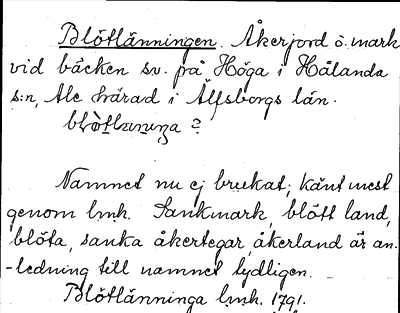 Blötlänningen. Åkerjord o. mark
vid bäcken sv. på Höga i Hålanda
s:n, Ale härad i Älfsborgs län.
?
Namnet nu ej brukat; känt mest
genom l.m.h. Sankmark, blött land,
blöta, sanka åkertegar, åkerland är an-
-ledning till namnet tydligen.
Blötlänninga l.m.h. 1791.